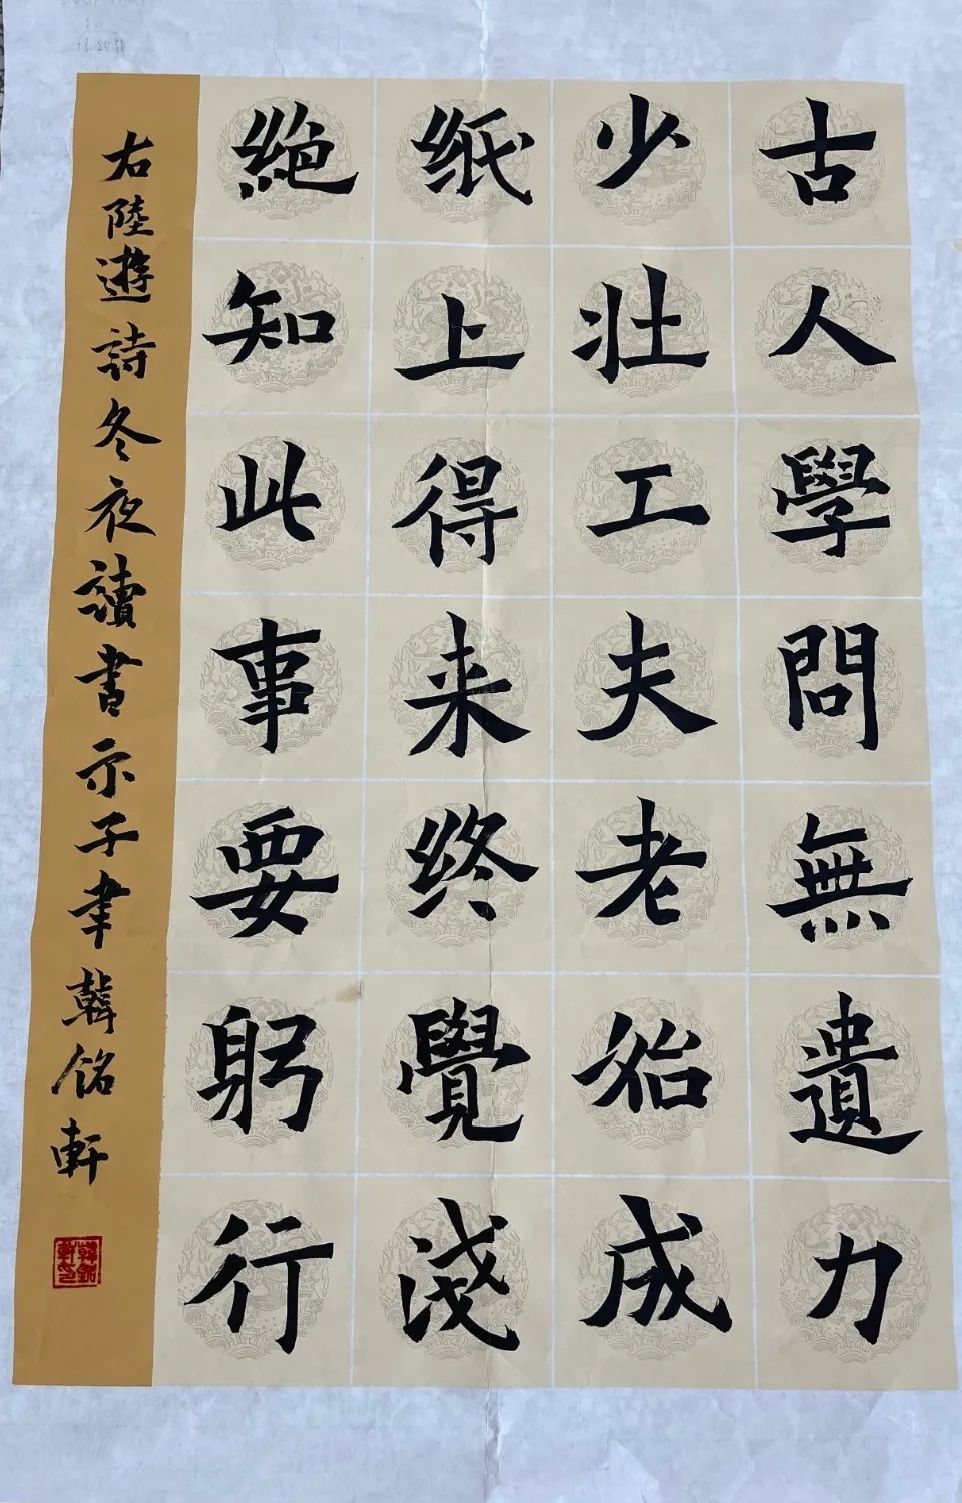 古人學問無遺力
少壯工夫老始成
纸上得来终覺淺
絕知此事要躬行
右陸遊詩冬夜讀書示子聿韓銘軒